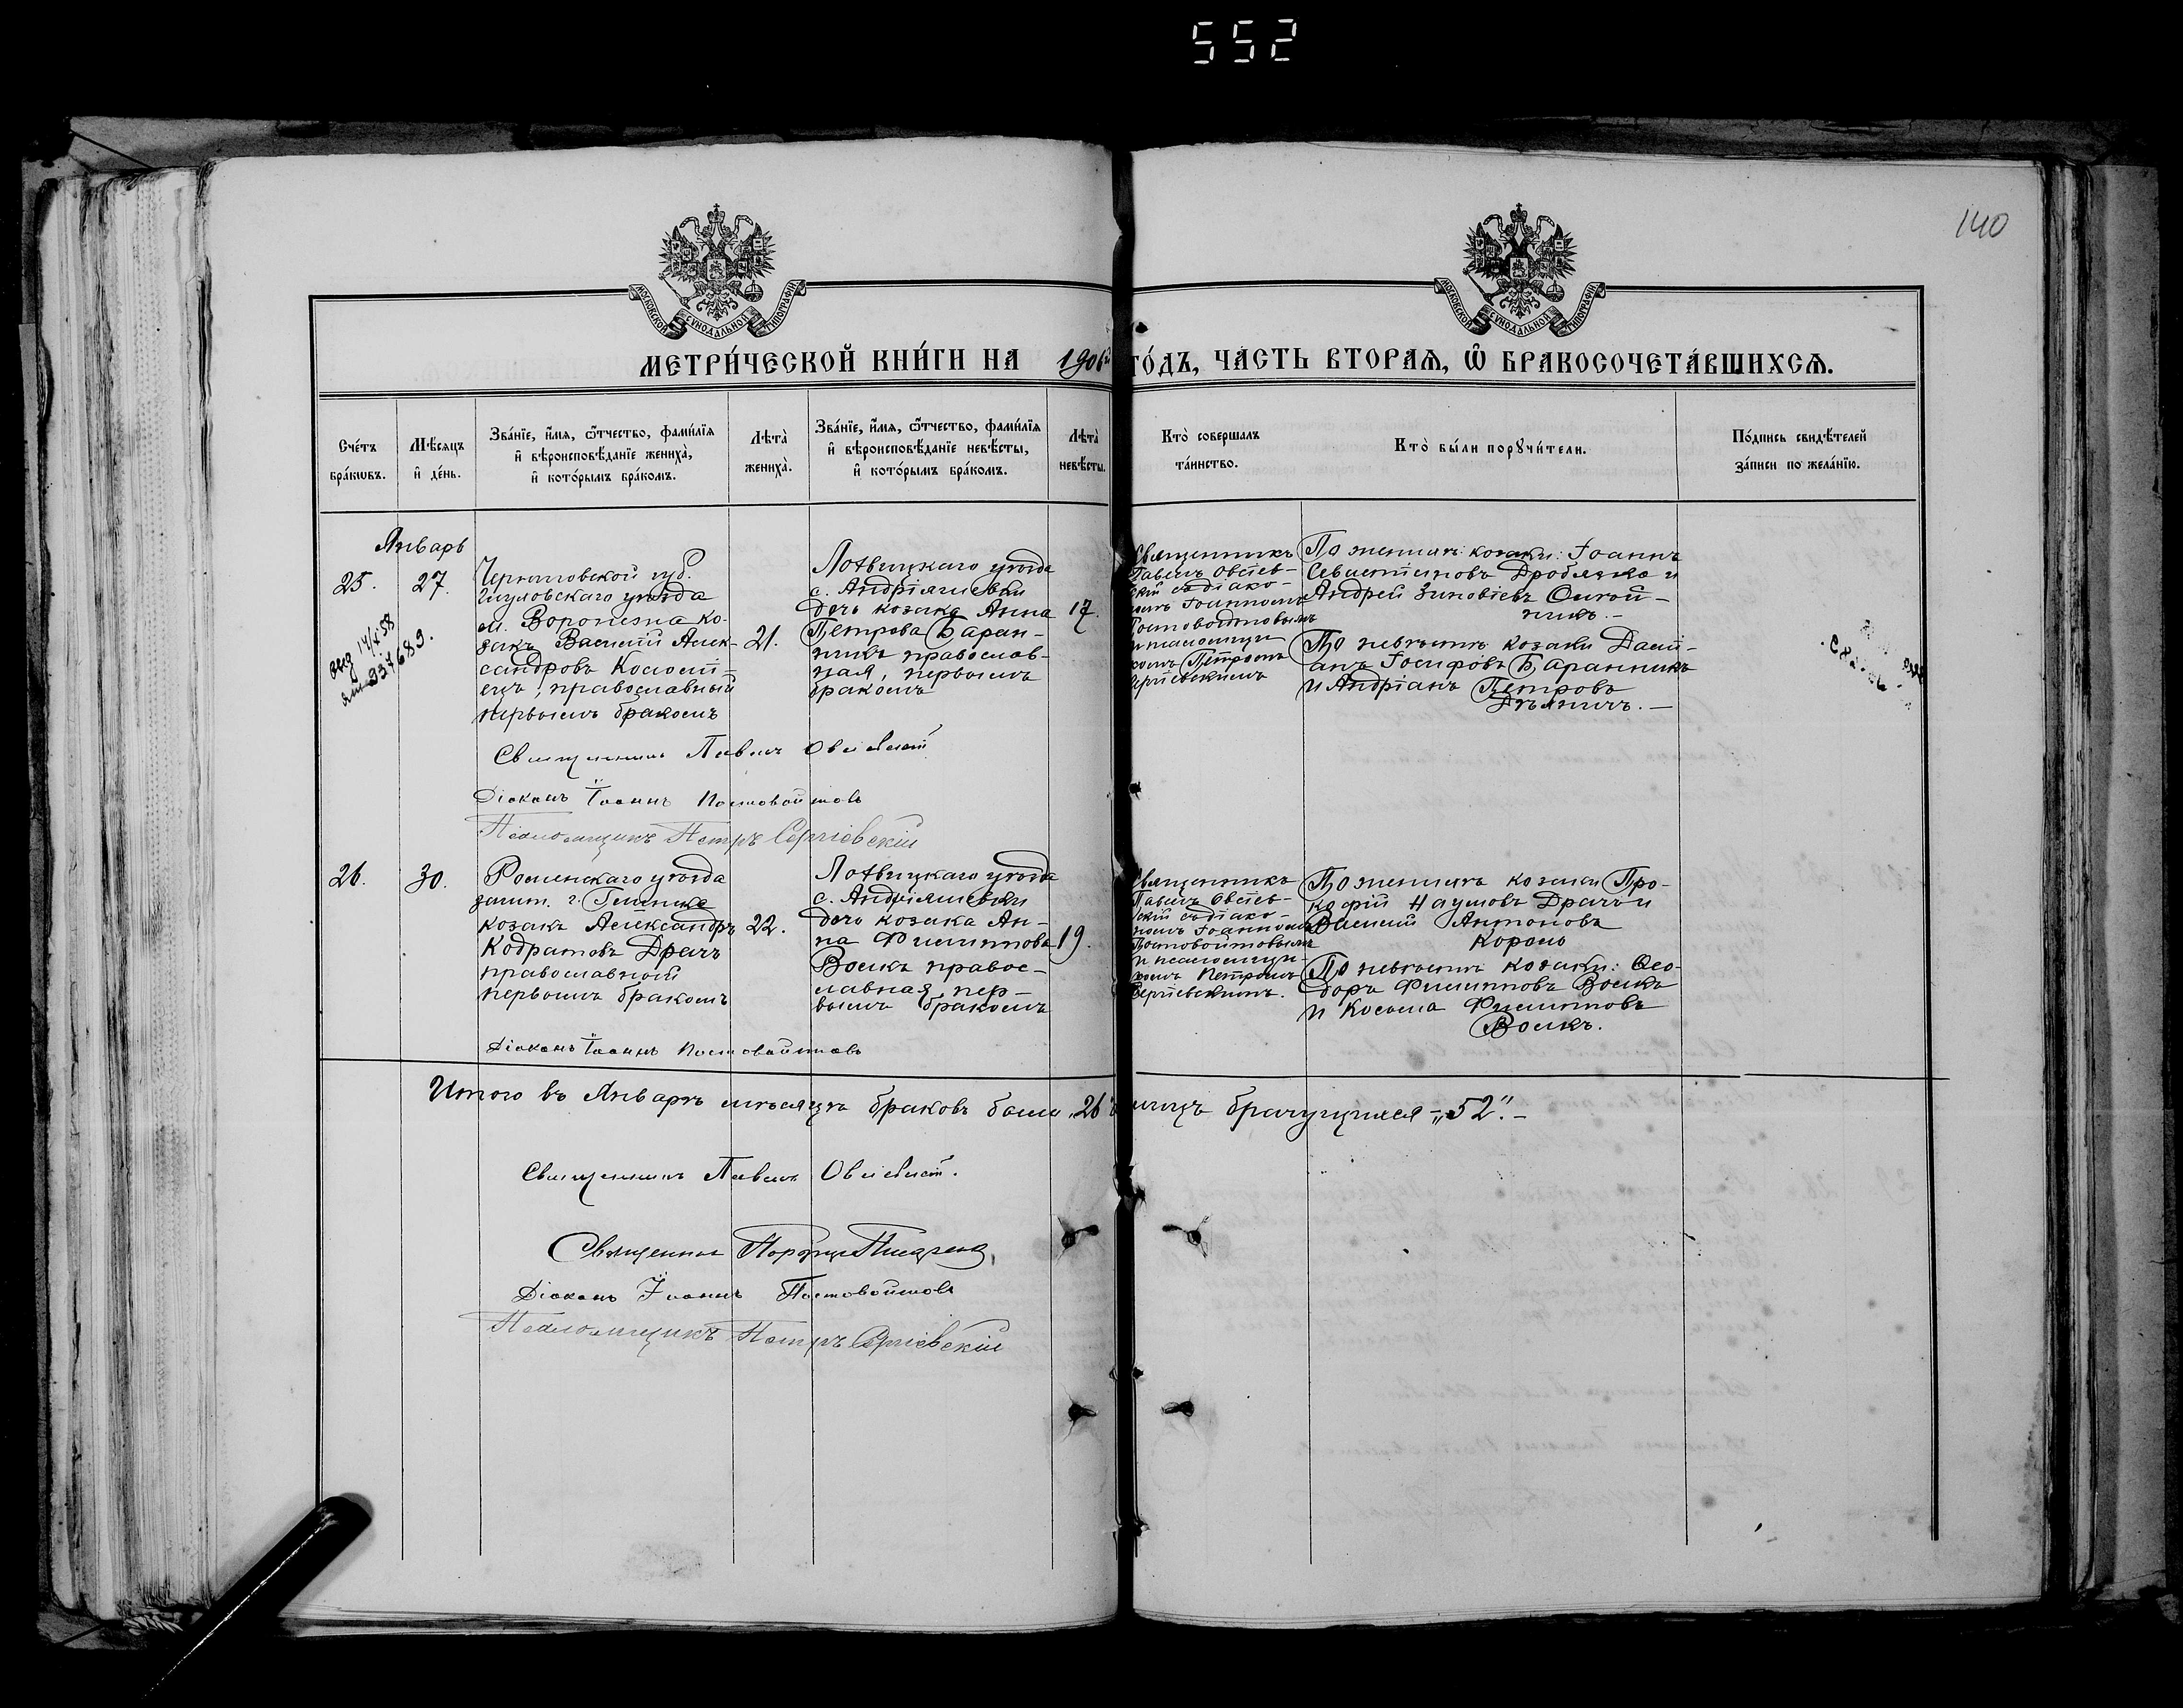 552
140
МОСКОВСКОЙ СѴНОДАЛЬНОЙ ТИПОГРАФІИ
МОСКОВСКОЙ СѴНОДАЛЬНОЙ ТИПОГРАФІИ
МЕТРИ́ЧЕСКОЙ КНИ́ГИ НА 1906й ГО́ДЪ, ЧА́СТЬ ВТОРАЯ, Ѿ БРАКОСОЧЕТА́ВШИХСЯ.
Сче́тъ
бра́кωвъ.
Мѣ́сяцъ
и҆ де́нь.
Зва́нїе, и҆́мя, ѻ҆́тчество, фами́лїя
и҆ вѣроисповѣ́данїе жениха̀,
и҆ кото́рымъ бра́комъ.
Лѣта̀
жениха̀.
Зва́нїе, и҆́мя, ѻ҆́тчество, фами́лїя
и҆ вѣроисповѣ́данїе невѣ́сты,
и҆ кото́рымъ бра́комъ.
Лѣта̀
невѣ́сты.
Кто̀ соверша́лъ
та́инство.
Кто̀ бы́ли порꙋчи́тели.
По́дпись свидѣ́телей
за́писи по жела́нїю.
Январь
25.
27.
Черниговской губ.
Глуховскаго уѣзда
м. Воронежа ко-
закъ Василій Алек-
сандровъ Коломі-
ецъ, православный
первымъ бракомъ
21.
Лохвицкаго уѣзда
с. Андріяшевки
дочь козака Анна
Петрова Баран-
никъ православ-
ная, первымъ
бракомъ
17.
Священникъ
Павелъ Овсіев-
скій съ діако-
номъ Іоанномъ
Постовойтовымъ
и псаломщи-
комъ Петромъ
Сергіевскимъ
По женихѣ: козаки: Іоаннъ
Севастіановъ Дробязко и
Андрей Зиновіевъ Олій-
никъ. -
По невѣстѣ козаки Даmі-
анъ Іосифовъ Баранникъ
и Андріанъ Петровъ
337683.
Священникъ Павелъ Овсіевскій
Діаконъ Іоаннъ Постовойтовъ
Псаломщикъ Петръ Сергіевскій
26.
30.
Роменскаго уѣзда
зашт. г. Глинска
козакъ Александръ
Кодратовъ Драчъ
православный
первымъ бракомъ
22.
Лохвицкаго уѣзда
с. Андріяшевки
дочь козака Ан-
на Филиппова
Волкъ правос-
лавная, пер-
вымъ бракомъ
19.
Священникъ
Павелъ Овсіев-
скій съ діако-
номъ Іоанномъ
Постовойтовымъ
и псаломщи-
комъ Петромъ
Сергіевскимъ.
По женихѣ козаки Про-
кофій Наумовъ Драчъ и
Василій Антоновъ
Король
По невѣстѣ козаки: Ѳео-
доръ Филипповъ Волкъ
и Косьма Филипповъ
Волкъ.
Діаконъ Іоаннъ Постовойтовъ
Итого въ Январѣ мѣсяцѣ браковъ было „26" лицъ брачущихся - „52". -
Священникъ Павелъ Овсіевскій.
Священникъ
Діаконъ Іоаннъ Постовойтовъ
Псаломщикъ Петръ Сергіевскій